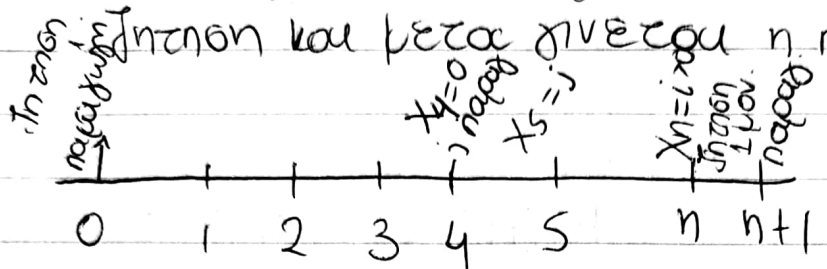 ζήτηση και μετα γινεται η
ζητηση
παραγωγη
X4=0
j παραγ
X5=j
Xn=i<α
ζητηση
1 μον
παραγ
0 1 2 3 4 5 n n+1